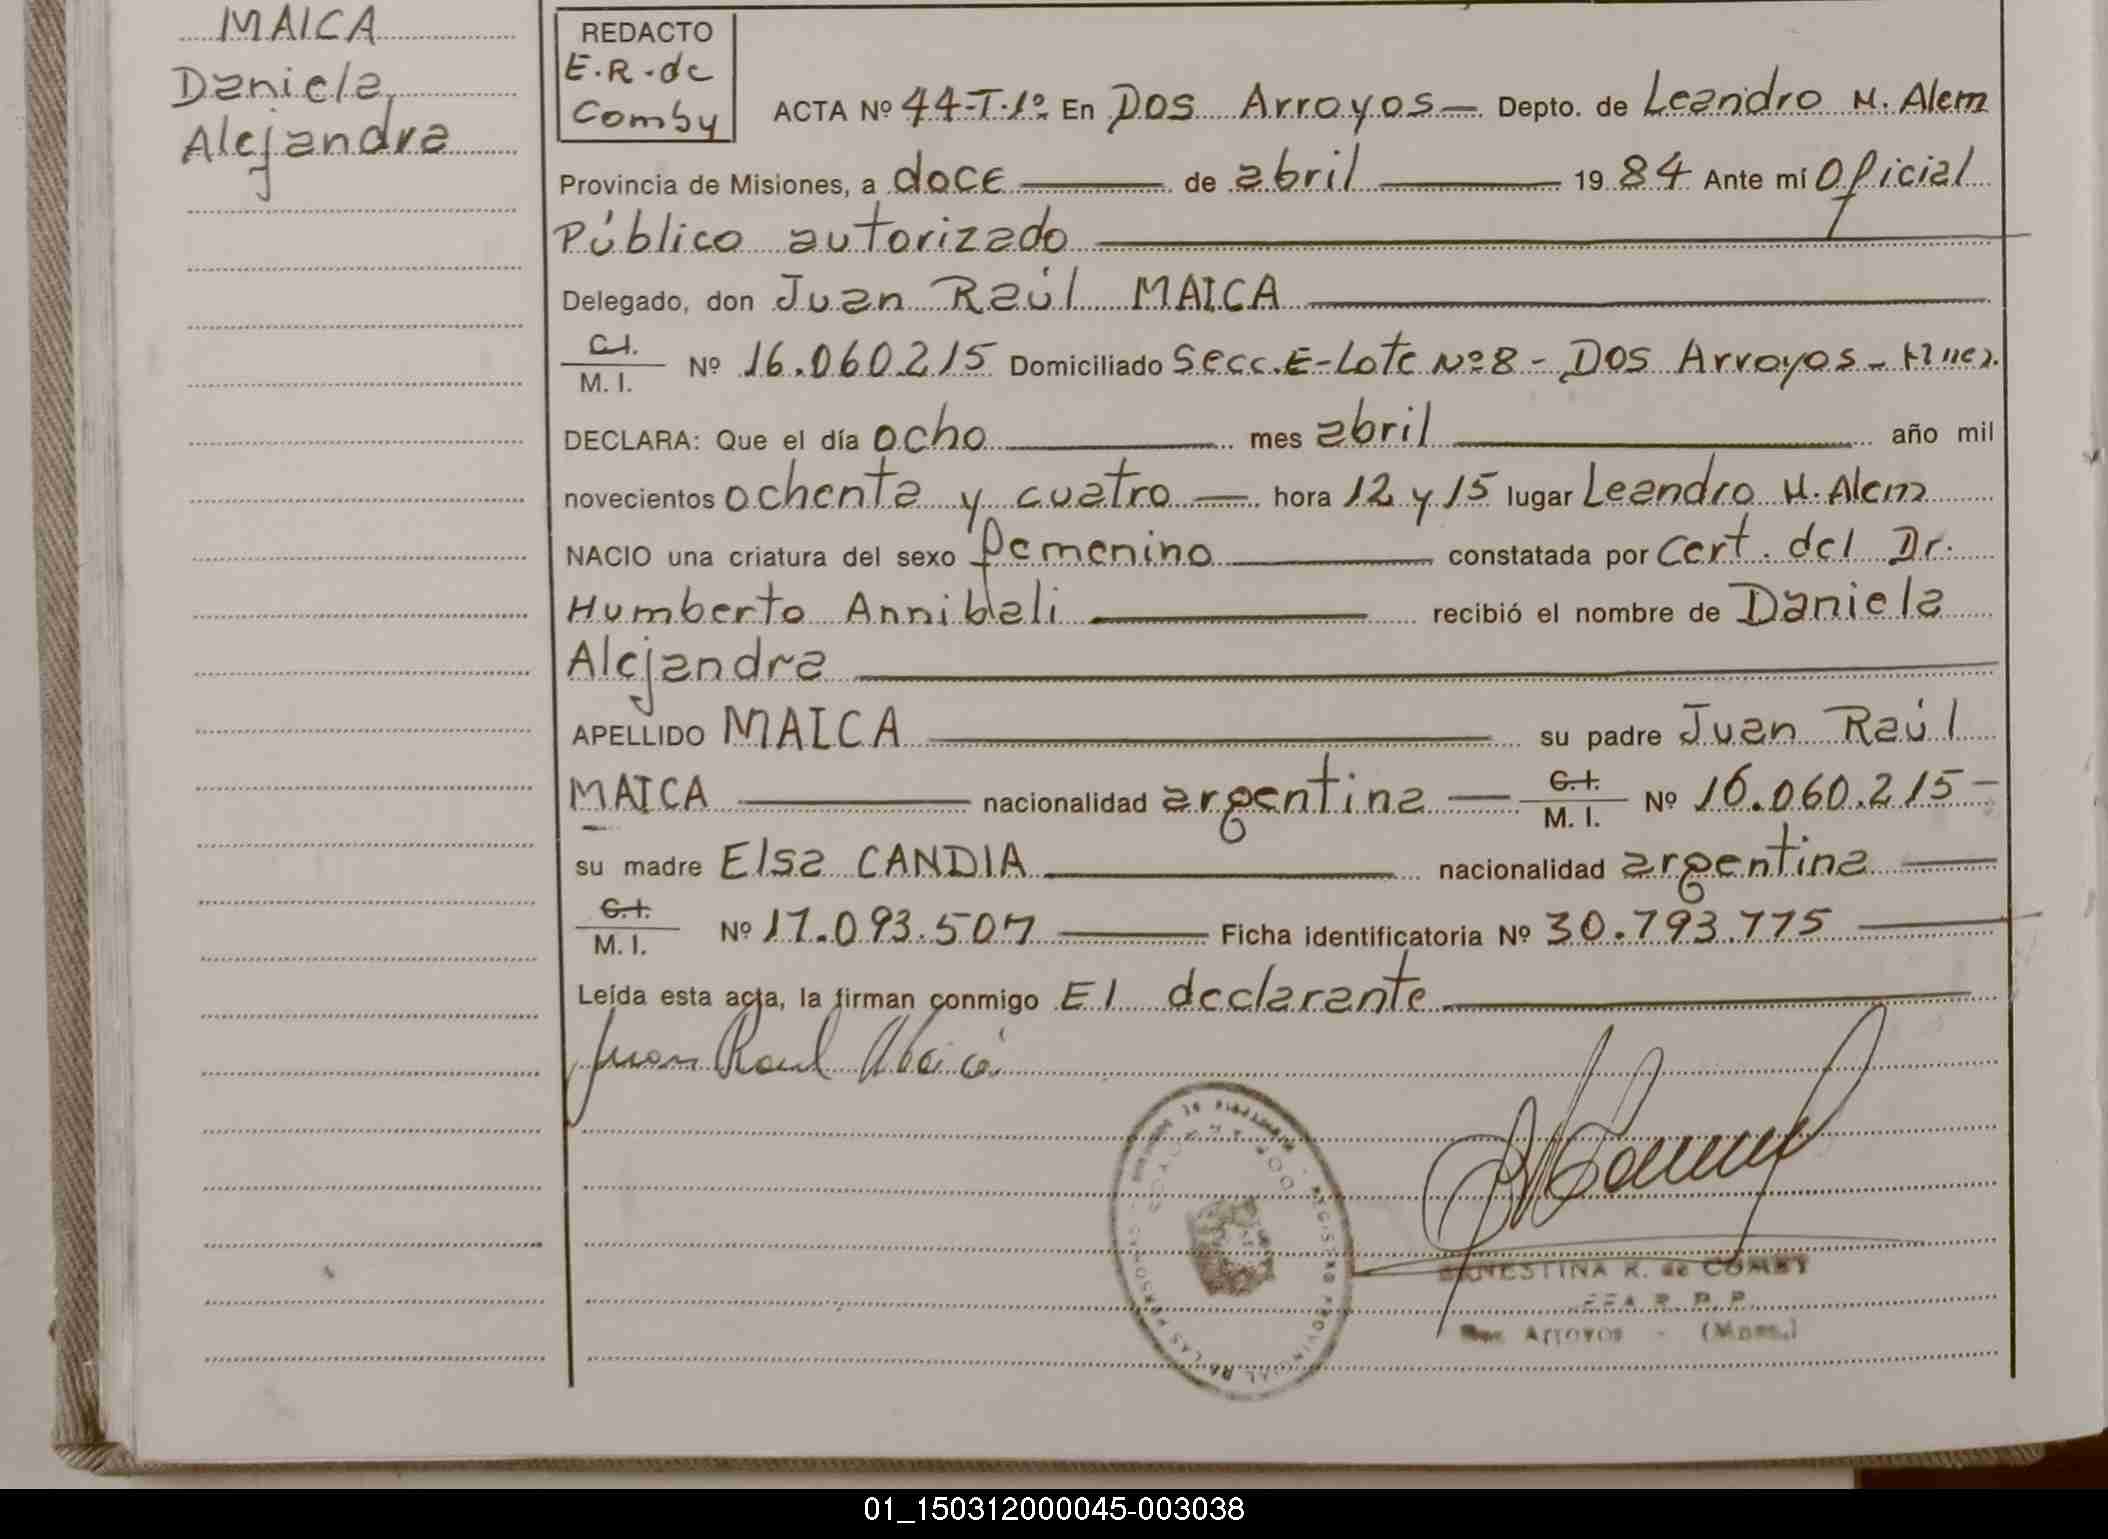 MAICA
Daniela
Alejandra
REDACTO
E.R. de
Comby
ACTA Nº 44-T.1º En Dos Arroyos — Depto. de Leandro N. Alem
Provincia de Misiones, a doce de abril 1984 Ante mí Oficial
Público autorizado
Delegado, don Juan Raúl MAICA
C.I. / M. I. Nº 16.060.215 Domiciliado Secc. E-Lote Nº 8 - Dos Arroyos -
DECLARA: Que el día ocho mes abril año mil
novecientos ochenta y cuatro — hora 12 y 15 lugar Leandro N. Alem
NACIO una criatura del sexo femenino constatada por Cert. del Dr.
Humberto Annibali recibió el nombre de Daniela
Alejandra
APELLIDO MAICA su padre Juan Raúl
MAICA nacionalidad argentina — C.I. / M. I. Nº 16.060.215 —
su madre Elsa CANDIA nacionalidad argentina
C.I. / M. I. Nº 17.093.507 Ficha identificatoria Nº 30.793.775
Leída esta acta, la firman conmigo El declarante
Juan Raul Maica
REGISTRO PROVINCIAL DE LAS PERSONAS
ERNESTINA R. de COMBY
JEFA R. P. P.
Dos Arroyos - (Mnes.)
01_150312000045-003038